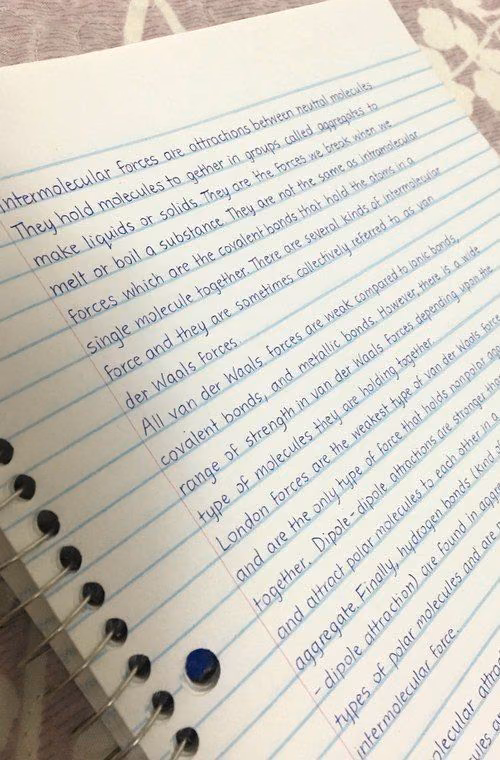 Intermolecular forces are attractions between neutral molecules
They hold molecules to gether in groups called aggregates to
make liquids or solids. They are the forces we break when we
melt or boil a substance. They are not the same as intramolecular
forces which are the covalent bonds that hold the atoms in a
single molecule together. There are several kinds of intermolecular
force and they are sometimes collectively referred to as van
der Waals forces.
All van der Waals forces are weak compared to ionic bonds,
covalent bonds, and metallic bonds. However, there is a wide
range of strength in van der Waals forces depending upon the
type of molecules they are holding together.
London forces are the weakest type of van der Waals force
and are the only type of force that holds nonpolar
together. Dipole-dipole attractions are stronger
and attract polar molecules to each other in
aggregate. Finally, hydrogen bonds (kind
-dipole attraction) are found in
types of polar molecules and are
intermolecular force.